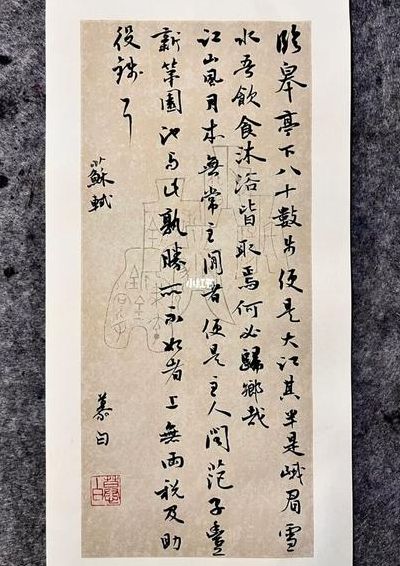 臨皋亭下八十數步便是大江其半是峨眉雪
水吾飲食沐浴皆取焉何必歸鄉哉
江山風月本無常主閒者便是主人聞范子豐
新第園池与此孰勝所不如者上無兩税及助
役錢耳
蘇軾
慕白
小红书